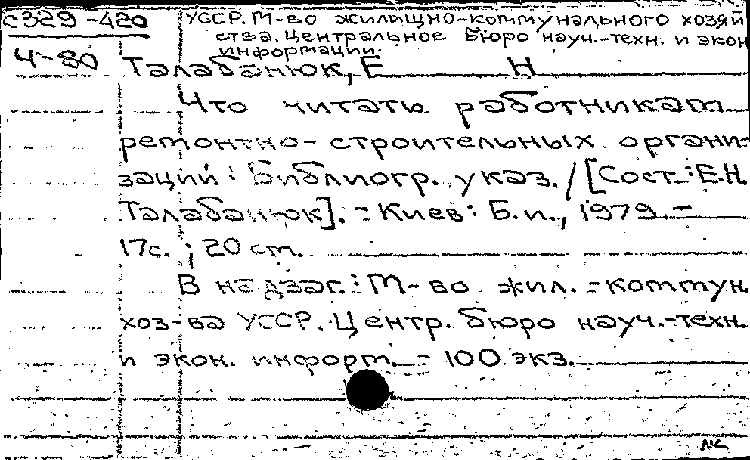 с329-420 УССР. М-во жилищно-коммунального хозяй
ства. Центральное бюро науч.-техн. и экон
информации.
4-80 Талабанюк, Е Н
Что читать работникам
ремонтно-строительных органи-
заций: Библиогр. указ. / [Сост.: Е.Н.
Талабанюк]. - Киев: Б.и., 1979 -
17с. ; 20 см.
В надзаг.: М-во жил.-коммун.
хоз-ва УССР. Центр. бюро науч.-техн.
и экон. информ. - 100 экз.